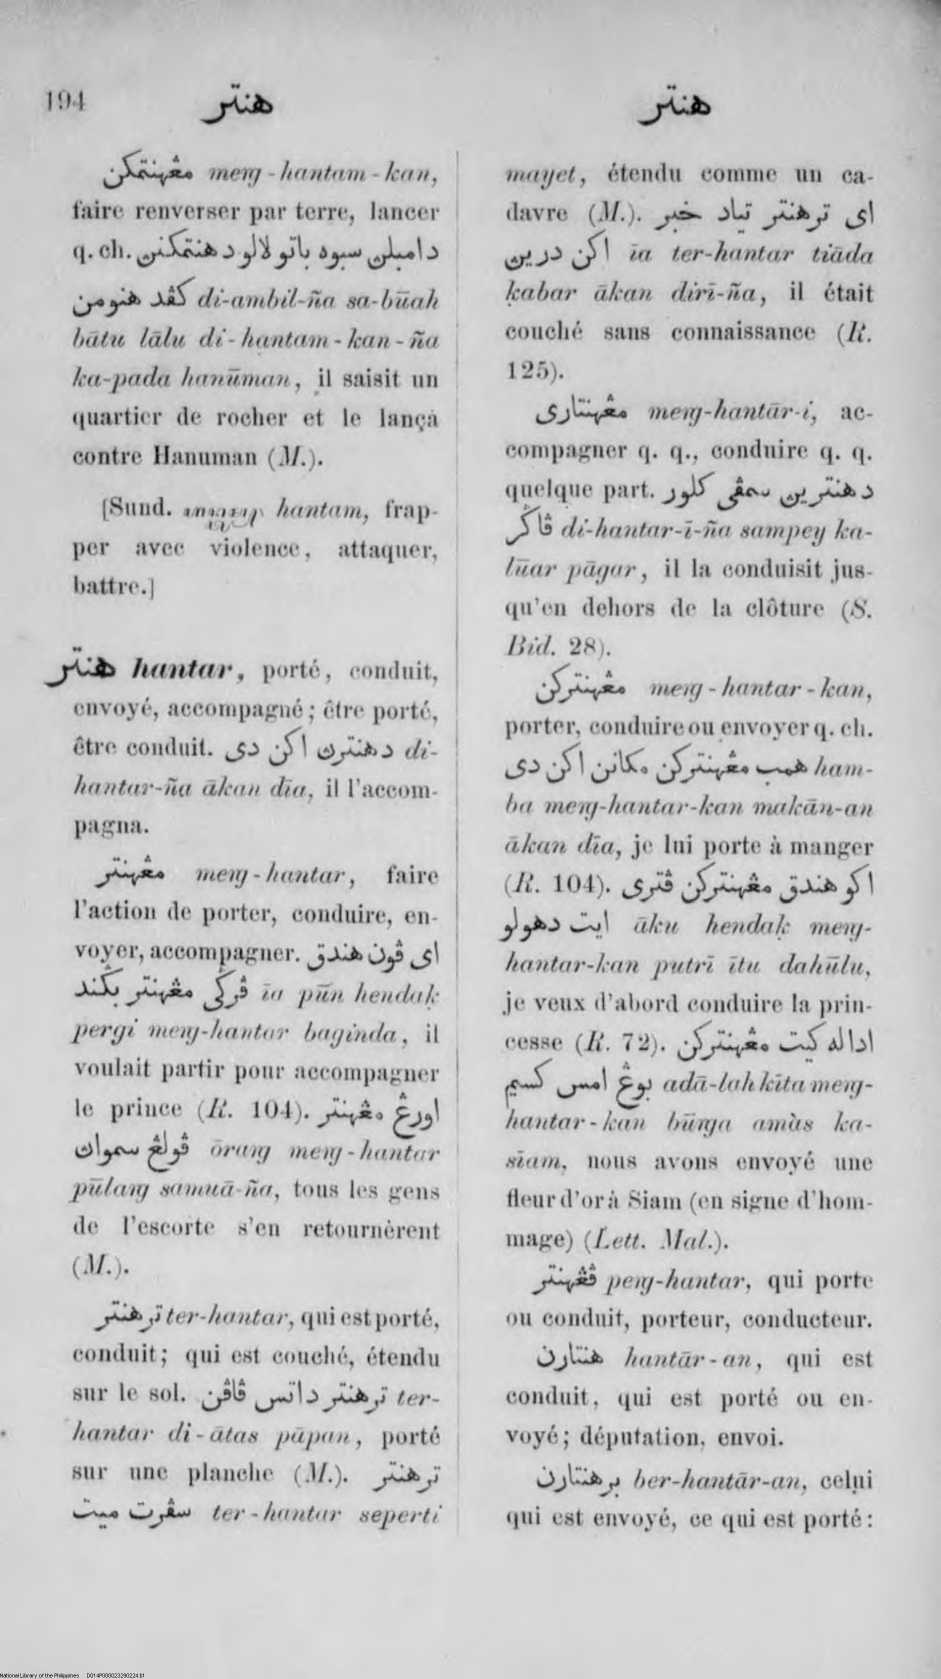 194
هنتر
هنتر
مڠهنتمكن meng-hantam-kan,
faire renverser par terre, lancer
q. ch. دامبلن سبوه باتو لالو دهنتمكنن
كڤد هنومن di-ambil-ña sa-būah
bātu lālu di-hantam-kan-ña
ka-pada hanūman, il saisit un
quartier de rocher et le lança
contre Hanuman (M.).
[Sund. hantam, frap-
per avec violence, attaquer,
battre.]
هنتر hantar, porté, conduit,
envoyé, accompagné; être porté,
être conduit. دهنترن اكن دي di-
hantar-ña ākan dīa, il l'accom-
pagna.
مڠهنتر meng-hantar, faire
l'action de porter, conduire, en-
voyer, accompagner. اى ڤون هندق
ڤرگى مڠهنتر بگند īa pūn hendaḳ
pergi meng-hantar baginda, il
voulait partir pour accompagner
le prince (R. 104). اورڠ مڠهنتر
ڤولڠ سموان ōrang meng-hantar
pūlang samuā-ña, tous les gens
de l'escorte s'en retournèrent
(M.).
ترهنتر ter-hantar, qui est porté,
conduit; qui est couché, étendu
sur le sol. ترهنتر داتس ڤاڤن ter-
hantar di-ātas pāpan, porté
sur une planche (M.). ترهنتر
سڤرت ميت ter-hantar seperti
mayet, étendu comme un ca-
davre (M.). اى ترهنتر تياد خبر
اكن درين īa ter-hantar tiāda
kabar ākan dirī-ña, il était
couché sans connaissance (R.
125).
مڠهنتارى meng-hantār-i, ac-
compagner q. q., conduire q. q.
quelque part. دهنترين سمڤى كلور
ڤاگر di-hantar-ī-ña sampey ka-
lūar pāgar, il la conduisit jus-
qu'en dehors de la clôture (S.
Bid. 28).
مڠهنتركن meng-hantar-kan,
porter, conduire ou envoyer q. ch.
همب مڠهنتركن مكانن اكن دى ham-
ba meng-hantar-kan makān-an
ākan dīa, je lui porte à manger
(R. 104). اكو هندق مڠهنتركن ڤترى
ايت دهولو āku hendaḳ meng-
hantar-kan putrī ītu dahūlu,
je veux d'abord conduire la prin-
cesse (R. 72). اداله كيت مڠهنتركن
بوڠ امس كسيم adā-lah kīta meng-
hantar-kan būnga amàs ka-
sīam, nous avons envoyé une
fleur d'or à Siam (en signe d'hom-
mage) (Lett. Mal.).
ڤڠهنتر peng-hantar, qui porte
ou conduit, porteur, conducteur.
هنتارن hantār-an, qui est
conduit, qui est porté ou en-
voyé; députation, envoi.
برهنتارن ber-hantār-an, celui
qui est envoyé, ce qui est porté:
National Library of the Philippines